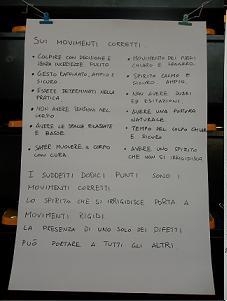 SUI MOVIMENTI CORRETTI
• COLPIRE CON DECISIONE E
SENZA INCERTEZZE PULITO
• GESTO RAFFINATO, AMPIO E
SICURO
• ESSERE DETERMINATI NELLA
PRATICA
• NON AVERE TENSIONI NEL
CORPO
• AVERE LE SPALLE RILASSATE
E BASSE
• SAPER MUOVERE IL CORPO
CON CURA
• MOVIMENTO DEI PIEDI
CHIARO E LEGGERO
• SPIRITO CALMO E
SICURO. AMPIO.
• NON AVERE DUBBI
ED ESITAZIONI
• AVERE UNA POSTURA
NATURALE
• TEMPO DEL COLPO CHIARO
E SICURO
• AVERE UNO SPIRITO
CHE NON SI IRRIGIDISCE
I SUDDETTI DODICI PUNTI SONO I
MOVIMENTI CORRETTI
LO SPIRITO CHE SI IRRIGIDISCE PORTA A
MOVIMENTI RIGIDI
LA PRESENZA DI UNO SOLO DEI DIFETTI
PUÒ PORTARE A TUTTI GLI ALTRI